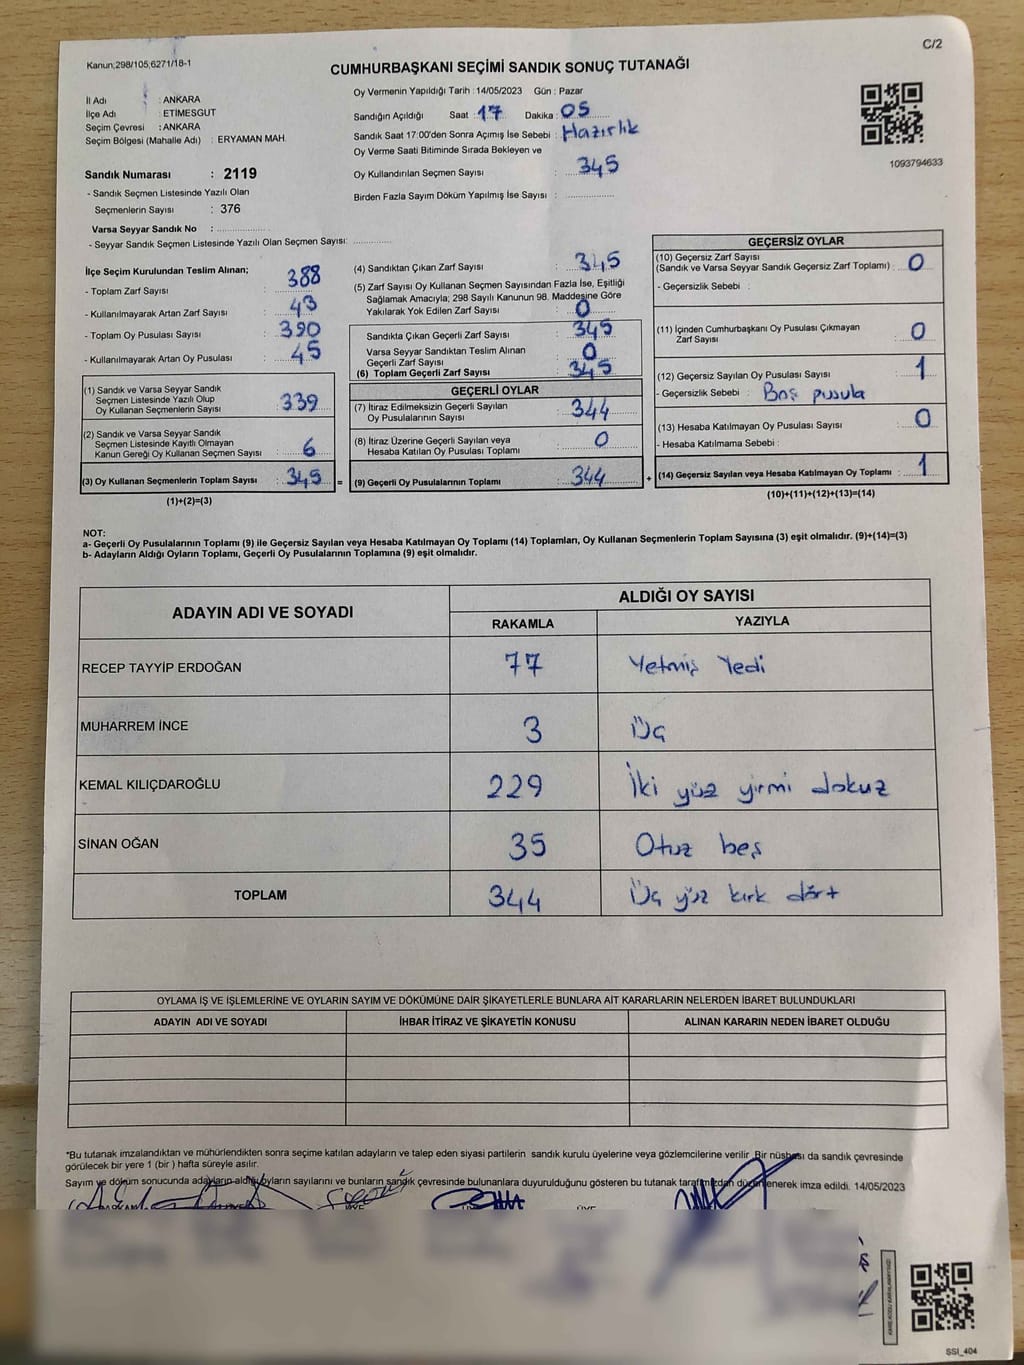 C/2
Kanun;298/105;6271/18-1
CUMHURBAŞKANI SEÇİMİ SANDIK SONUÇ TUTANAĞI
İl Adı : ANKARA
İlçe Adı : ETİMESGUT
Seçim Çevresi : ANKARA
Seçim Bölgesi (Mahalle Adı) : ERYAMAN MAH.
Sandık Numarası : 2119
- Sandık Seçmen Listesinde Yazılı Olan
Seçmenlerin Sayısı : 376
Varsa Seyyar Sandık No : ..................
- Seyyar Sandık Seçmen Listesinde Yazılı Olan Seçmen Sayısı: .............
Oy Vermenin Yapıldığı Tarih : 14/05/2023 Gün : Pazar
Sandığın Açıldığı Saat : 17 Dakika : 05
Sandık Saat 17:00'den Sonra Açımış İse Sebebi : Hazırlık
Oy Verme Saati Bitiminde Sırada Bekleyen ve
Oy Kullandırılan Seçmen Sayısı : 345
Birden Fazla Sayım Döküm Yapılmış İse Sayısı : ..................
1093794633
İlçe Seçim Kurulundan Teslim Alınan;
- Toplam Zarf Sayısı : 388
- Kullanılmayarak Artan Zarf Sayısı : 43
- Toplam Oy Pusulası Sayısı : 390
- Kullanılmayarak Artan Oy Pusulası : 45
(1) Sandık ve Varsa Seyyar Sandık
Seçmen Listesinde Yazılı Olup
Oy Kullanan Seçmenlerin Sayısı : 339
(2) Sandık ve Varsa Seyyar Sandık
Seçmen Listesinde Kayıtlı Olmayan
Kanun Gereği Oy Kullanan Seçmen Sayısı : 6
(3) Oy Kullanan Seçmenlerin Toplam Sayısı : 345 =
(1)+(2)=(3)
(4) Sandıktan Çıkan Zarf Sayısı : 345
(5) Zarf Sayısı Oy Kullanan Seçmen Sayısından Fazla İse, Eşitliği
Sağlamak Amacıyla; 298 Sayılı Kanunun 98. Maddesine Göre
Yakılarak Yok Edilen Zarf Sayısı : 0
Sandıkta Çıkan Geçerli Zarf Sayısı : 345
Varsa Seyyar Sandıktan Teslim Alınan
Geçerli Zarf Sayısı : 0
(6) Toplam Geçerli Zarf Sayısı : 345
GEÇERLİ OYLAR
(7) İtiraz Edilmeksizin Geçerli Sayılan
Oy Pusulalarının Sayısı : 344
(8) İtiraz Üzerine Geçerli Sayılan veya
Hesaba Katılan Oy Pusulası Toplamı : 0
(9) Geçerli Oy Pusulalarının Toplamı : 344 +
GEÇERSİZ OYLAR
(10) Geçersiz Zarf Sayısı
(Sandık ve Varsa Seyyar Sandık Geçersiz Zarf Toplamı) : 0
- Geçersizlik Sebebi :
(11) İçinden Cumhurbaşkanı Oy Pusulası Çıkmayan
Zarf Sayısı : 0
(12) Geçersiz Sayılan Oy Pusulası Sayısı : 1
- Geçersizlik Sebebi : Boş pusula
(13) Hesaba Katılmayan Oy Pusulası Sayısı : 0
- Hesaba Katılmama Sebebi :
(14) Geçersiz Sayılan veya Hesaba Katılmayan Oy Toplamı : 1
(10)+(11)+(12)+(13)=(14)
NOT:
a- Geçerli Oy Pusulalarının Toplamı (9) ile Geçersiz Sayılan veya Hesaba Katılmayan Oy Toplamı (14) Toplamları, Oy Kullanan Seçmenlerin Toplam Sayısına (3) eşit olmalıdır. (9)+(14)=(3)
b- Adayların Aldığı Oyların Toplamı, Geçerli Oy Pusulalarının Toplamına (9) eşit olmalıdır.
ADAYIN ADI VE SOYADI
ALDIĞI OY SAYISI
RAKAMLA YAZIYLA
RECEP TAYYİP ERDOĞAN 77 Yetmiş Yedi
MUHARREM İNCE 3 Üç
KEMAL KILIÇDAROĞLU 229 İki yüz yirmi dokuz
SİNAN OĞAN 35 Otuz beş
TOPLAM 344 Üç yüz kırk dört
OYLAMA İŞ VE İŞLEMLERİNE VE OYLARIN SAYIM VE DÖKÜMÜNE DAİR ŞİKAYETLERLE BUNLARA AİT KARARLARIN NELERDEN İBARET BULUNDUKLARI
ADAYIN ADI VE SOYADI İHBAR İTİRAZ VE ŞİKAYETİN KONUSU ALINAN KARARIN NEDEN İBARET OLDUĞU
*Bu tutanak imzalandıktan ve mühürlendikten sonra seçime katılan adayların ve talep eden siyasi partilerin sandık kurulu üyelerine veya gözlemcilerine verilir. Bir nüshası da sandık çevresinde
görülecek bir yere 1 (bir ) hafta süreyle asılır.
Sayım ve döküm sonucunda adayların aldığı oyların sayılarını ve bunların sandık çevresinde bulunanlara duyurulduğunu gösteren bu tutanak tarafımızdan düzenlenerek imza edildi. 14/05/2023
SSI_404